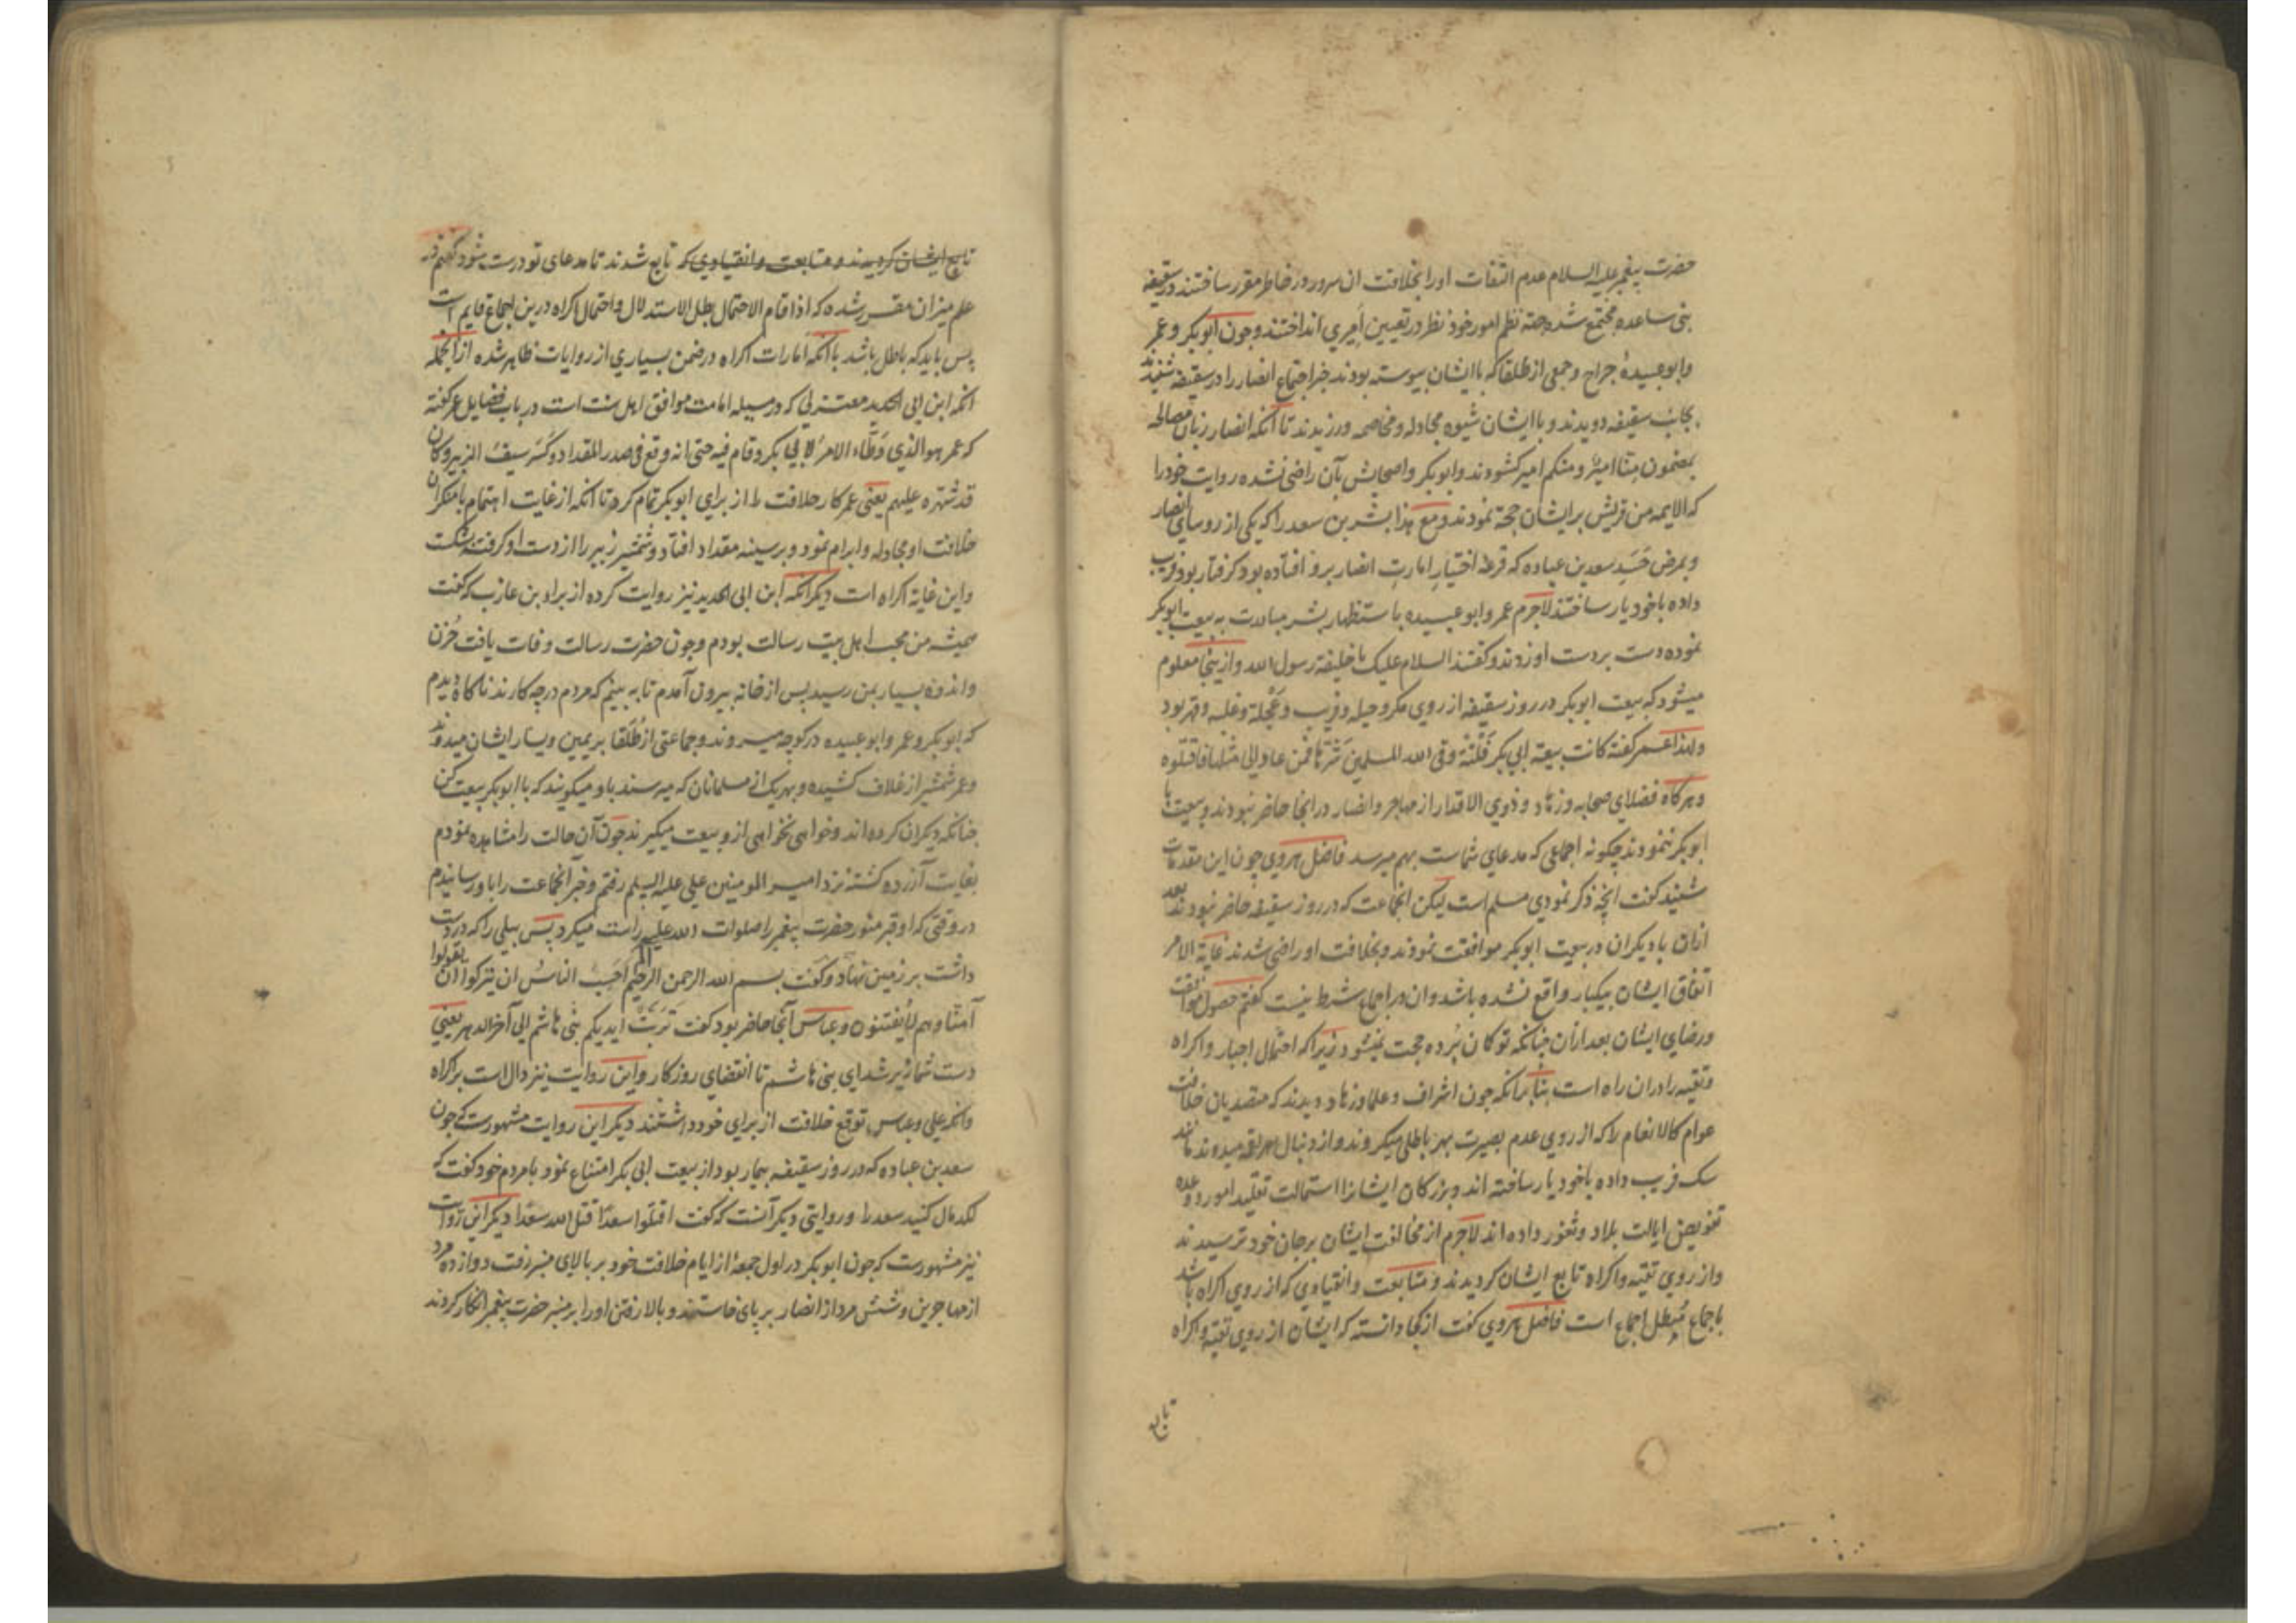 حضرت پیغمبر علیه السلام عدم التفات او را بخلافت ان سرور در خاطر مقرر ساختند در سقیفه
بنی ساعده مجتمع شده جهة نظم امور خود نظر در تعیین امیری انداختند و چون ابوبکر و عمر
و ابو عبیدهٔ جراح و جمعی از طلقا که با ایشان پیوسته بودند خبر اجتماع انصار را در سقیفه شنیدند
بجانب سقیفه دویدند و با ایشان شیوه مجادله و مخاصمه ورزیدند تا آنکه انصار زبان مصالحه
بمضمون منّا امیرٌ و منکم امیر کشودند و ابوبکر و اصحابش بآن راضی نشده روایت خود را
که الایمه من قریش بر ایشان حجة نمودند و مع هذا بشر بن سعد را که یکی از روسای انصار
و بمرض حَسَد سعد بن عباده که قرعهٔ اختیار امارت انصار برو افتاده بود کرفتار بود فریب
داده با خود یار ساختند لاجرم عمر و ابو عبیده با ستظهار بشر مبادرت به بیعت ابوبکر
نموده دست بر دست او زدند و کفتند السلام علیک یا خلیفة رسول الله و از ینجا معلوم
میشود که بیعت ابوبکر در روز سقیفه از روی مکر و حیله و فریب و عُجلة و غلبه و قهر بود
و لهذا عمر کفته کانت بیعة ابی بکر فَلْتَةً وقی الله المسلمین شَرّها فمن عاد الی مثلها فاقتلوه
و هرکاه فضلای صحابه و زهاد و ذوی الاقدار از مهاجر و انصار در انجا حاضر نبودند و بیعت با
ابوبکر ننمودند چکونه اجماعی که مدعای شماست بهم میرسد فاضل هروی چون این مقدمات
شنید کفت انچه ذکر نمودی مسلم است لیکن انجماعت که در روز سقیفه حاضر نبودند بعد
ازان با دیکران در بیعت ابوبکر موافقت نمودند و بخلافت او راضی شدند غایة الامر
اتفاق ایشان بیکبار واقع نشده باشد و ان در اجماع شرط نیست کفتم حصول موافقت
و رضای ایشان بعد ازان چنانکه تو کان بُرده حجت نمیشود زیرا که احتمال اجبار و اکراه
و تقیه را دران راه است بنا برانکه چون اشراف و علما و زهاد دیدند که متصدیان خلافت
عوام کالانعام را که از روی عدم بصیرت بهر باطلی میکروند و از دنبال هر ناعقه میدوند مانند
سک فریب داده با خود یار ساخته اند و بزرکان ایشانرا استمالت تقلید امور و وعده
تفویض ایالت بلاد و ثغور داده اند لاجرم از مخالفت ایشان بر جان خود ترسیدند
و از روی تقیه و اکراه تابع ایشان کردیدند و متابعت و انقیادی که از روی اکراه باشد
باجماع مُبطل اجماع است فاضل هروی کفت از کجا دانسته که ایشان از روی تقیه و اکراه
تابع
تابع ایشان کردیدند و متابعت و انقیادی که تابع شدند تا مدعای تو درست شود کفتم در
علم میزان مقرر شده که اذا قام الاحتمال بطل الاستدلال و احتمال اکراه درین اجماع قایم است
پس باید که باطل باشد با آنکه امارات اکراه در ضمن بسیاری از روایات ظاهر شده از انجمله
انکه ابن ابی الحدید معتزلی که در مسیله امامت موافق اهل سنت است در باب فضایل عمر کفته
که عمر هو الذی وَطّاء الامرَ لابی بکر و قام فیه حتی انه وقع فی صدر المقداد و کسَرَ سیفَ الزبیر و کان
قد شهره علیهم یعنی عمر کار خلافت را از برای ابوبکر تمام کرد تا آنکه از غایت اهتمام با منکران
خلافت او مجادله و ابرام نمود و بر سینه مقداد افتاد و شمشیر زبیر را از دست او کرفته شکست
و این غایة اکراه است دیکر انکه ابن ابی الحدید نیز روایت کرده از براء بن عازب که کفت
همیشه من محب اهل بیت رسالت بودم و چون حضرت رسالت وفات یافت حُزن
و اندوه بسیار بمن رسید پس از خانه بیرون آمدم تا به بینم که مردم در چه کارند ناکاه دیدم
که ابوبکر و عمر و ابو عبیده در کوچه میروند و جماعتی از طُلَقا بر یمین و یسار ایشان میدوند
و عمر شمشیر از غلاف کشیده و بهر یک از مسلمانان که میرسند باو میکویند که با ابوبکر بیعت کن
چنانکه دیکران کرده اند و خواهی نخواهی ازو بیعت میکیرند چون آن حالت را مشاهده نمودم
بغایت آزرده کشته نزد امیر المومنین علی علیه السلم رفتم و خبر انجماعت را باو رسانیدم
در وقتی که او قبر منور حضرت پیغمبر را صلوات الله علیه و آله راست میکرد پس بیلی را که در دست
داشت بر زمین نهاد و کفت بسم الله الرحمن الرحیم اَحَسِبَ الناسُ ان یترکوا ان یقولوا
آمنّا و هم لا یُفتنون و عباس آنجا حاضر بود کفت تَرِبَتْ ایدیکم بنی هاشم الی آخر الدهر یعنی
دست شما پُر شد ای بنی هاشم تا انقضای روزکار و این روایت نیز دال است بر اکراه
و انکه علی و عباس توقع خلافت از برای خود داشتند دیکر این روایت مشهورست که چون
سعد بن عباده که در روز سقیفه بیمار بود از بیعت ابی بکر امتناع نمود با مردم خود کفت که
لکدمال کنید سعد را و روایتی دیکر آنست که کفت اقتلوا سعدًا قتل الله سعدًا دیکر این روایت
نیز مشهورست که چون ابوبکر در اول جمعهٔ از ایام خلافت خود بر بالای منبر رفت دوازده مرد
از مهاجرین و شش مرد از انصار بر پای خاستند و بالا رفتن او را بر منبر حضرت پیغمبر انکار کردند